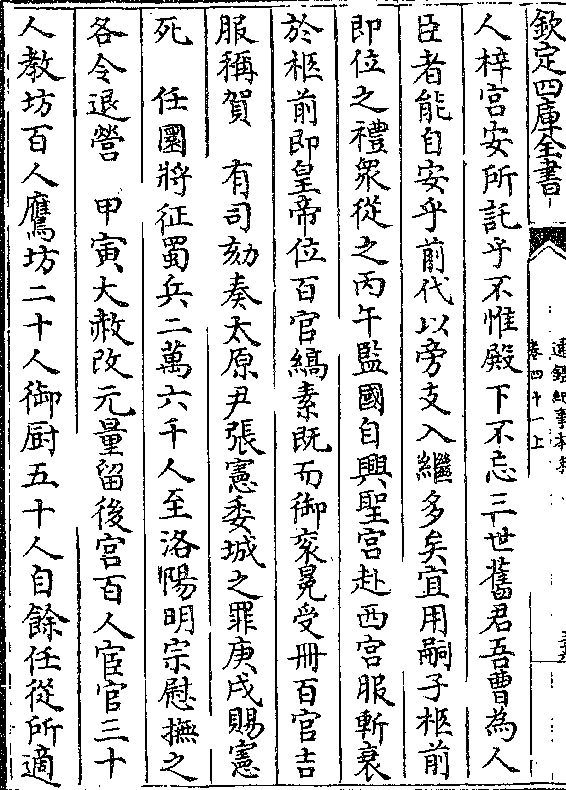 欽定四庫全書
通鑑紀事本末
卷四十一上
人梓宮安所託乎不惟殿下不忘三世舊君吾曹為人
臣者能自安乎前代以旁支入繼多矣宜用嗣子柩前
即位之禮衆從之丙午監國自興聖宮赴西宮服斬衰
於柩前即皇帝位百官縞素既而御衮冕受冊百官吉
服稱賀　有司劾奏太原尹張憲委城之罪庚戌賜憲
死　任圜將征蜀兵二萬六千人至洛陽明宗慰撫之
各令退營　甲寅大赦改元量留後宮百人宦官三十
人教坊百人鷹坊二十人御厨五十人自餘任從所適